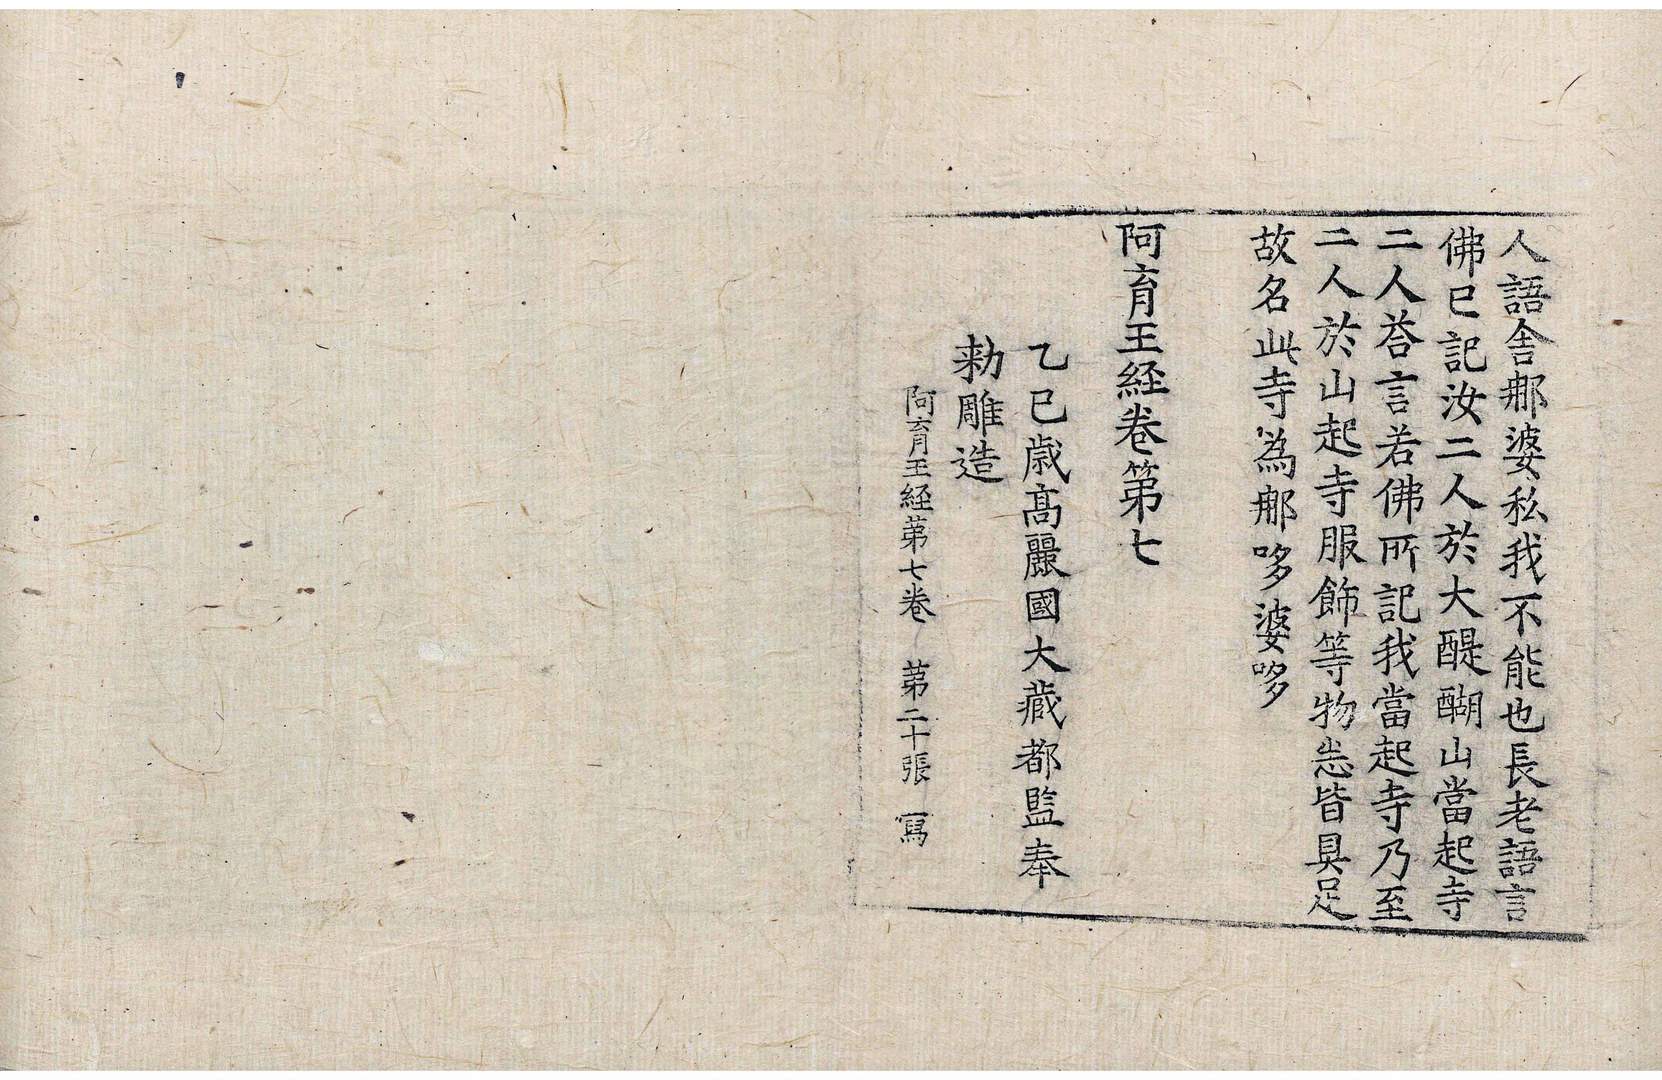 人語舍那婆私我不能也長老語言
佛已記汝二人於大醍醐山當起寺
二人荅言若佛所記我當起寺乃至
二人於山起寺服飾等物悉皆具足
故名此寺為那哆婆哆
阿育王経卷第七
乙巳歳高麗國大藏都監奉
勅雕造
阿育王経第七卷　第二十張　寫